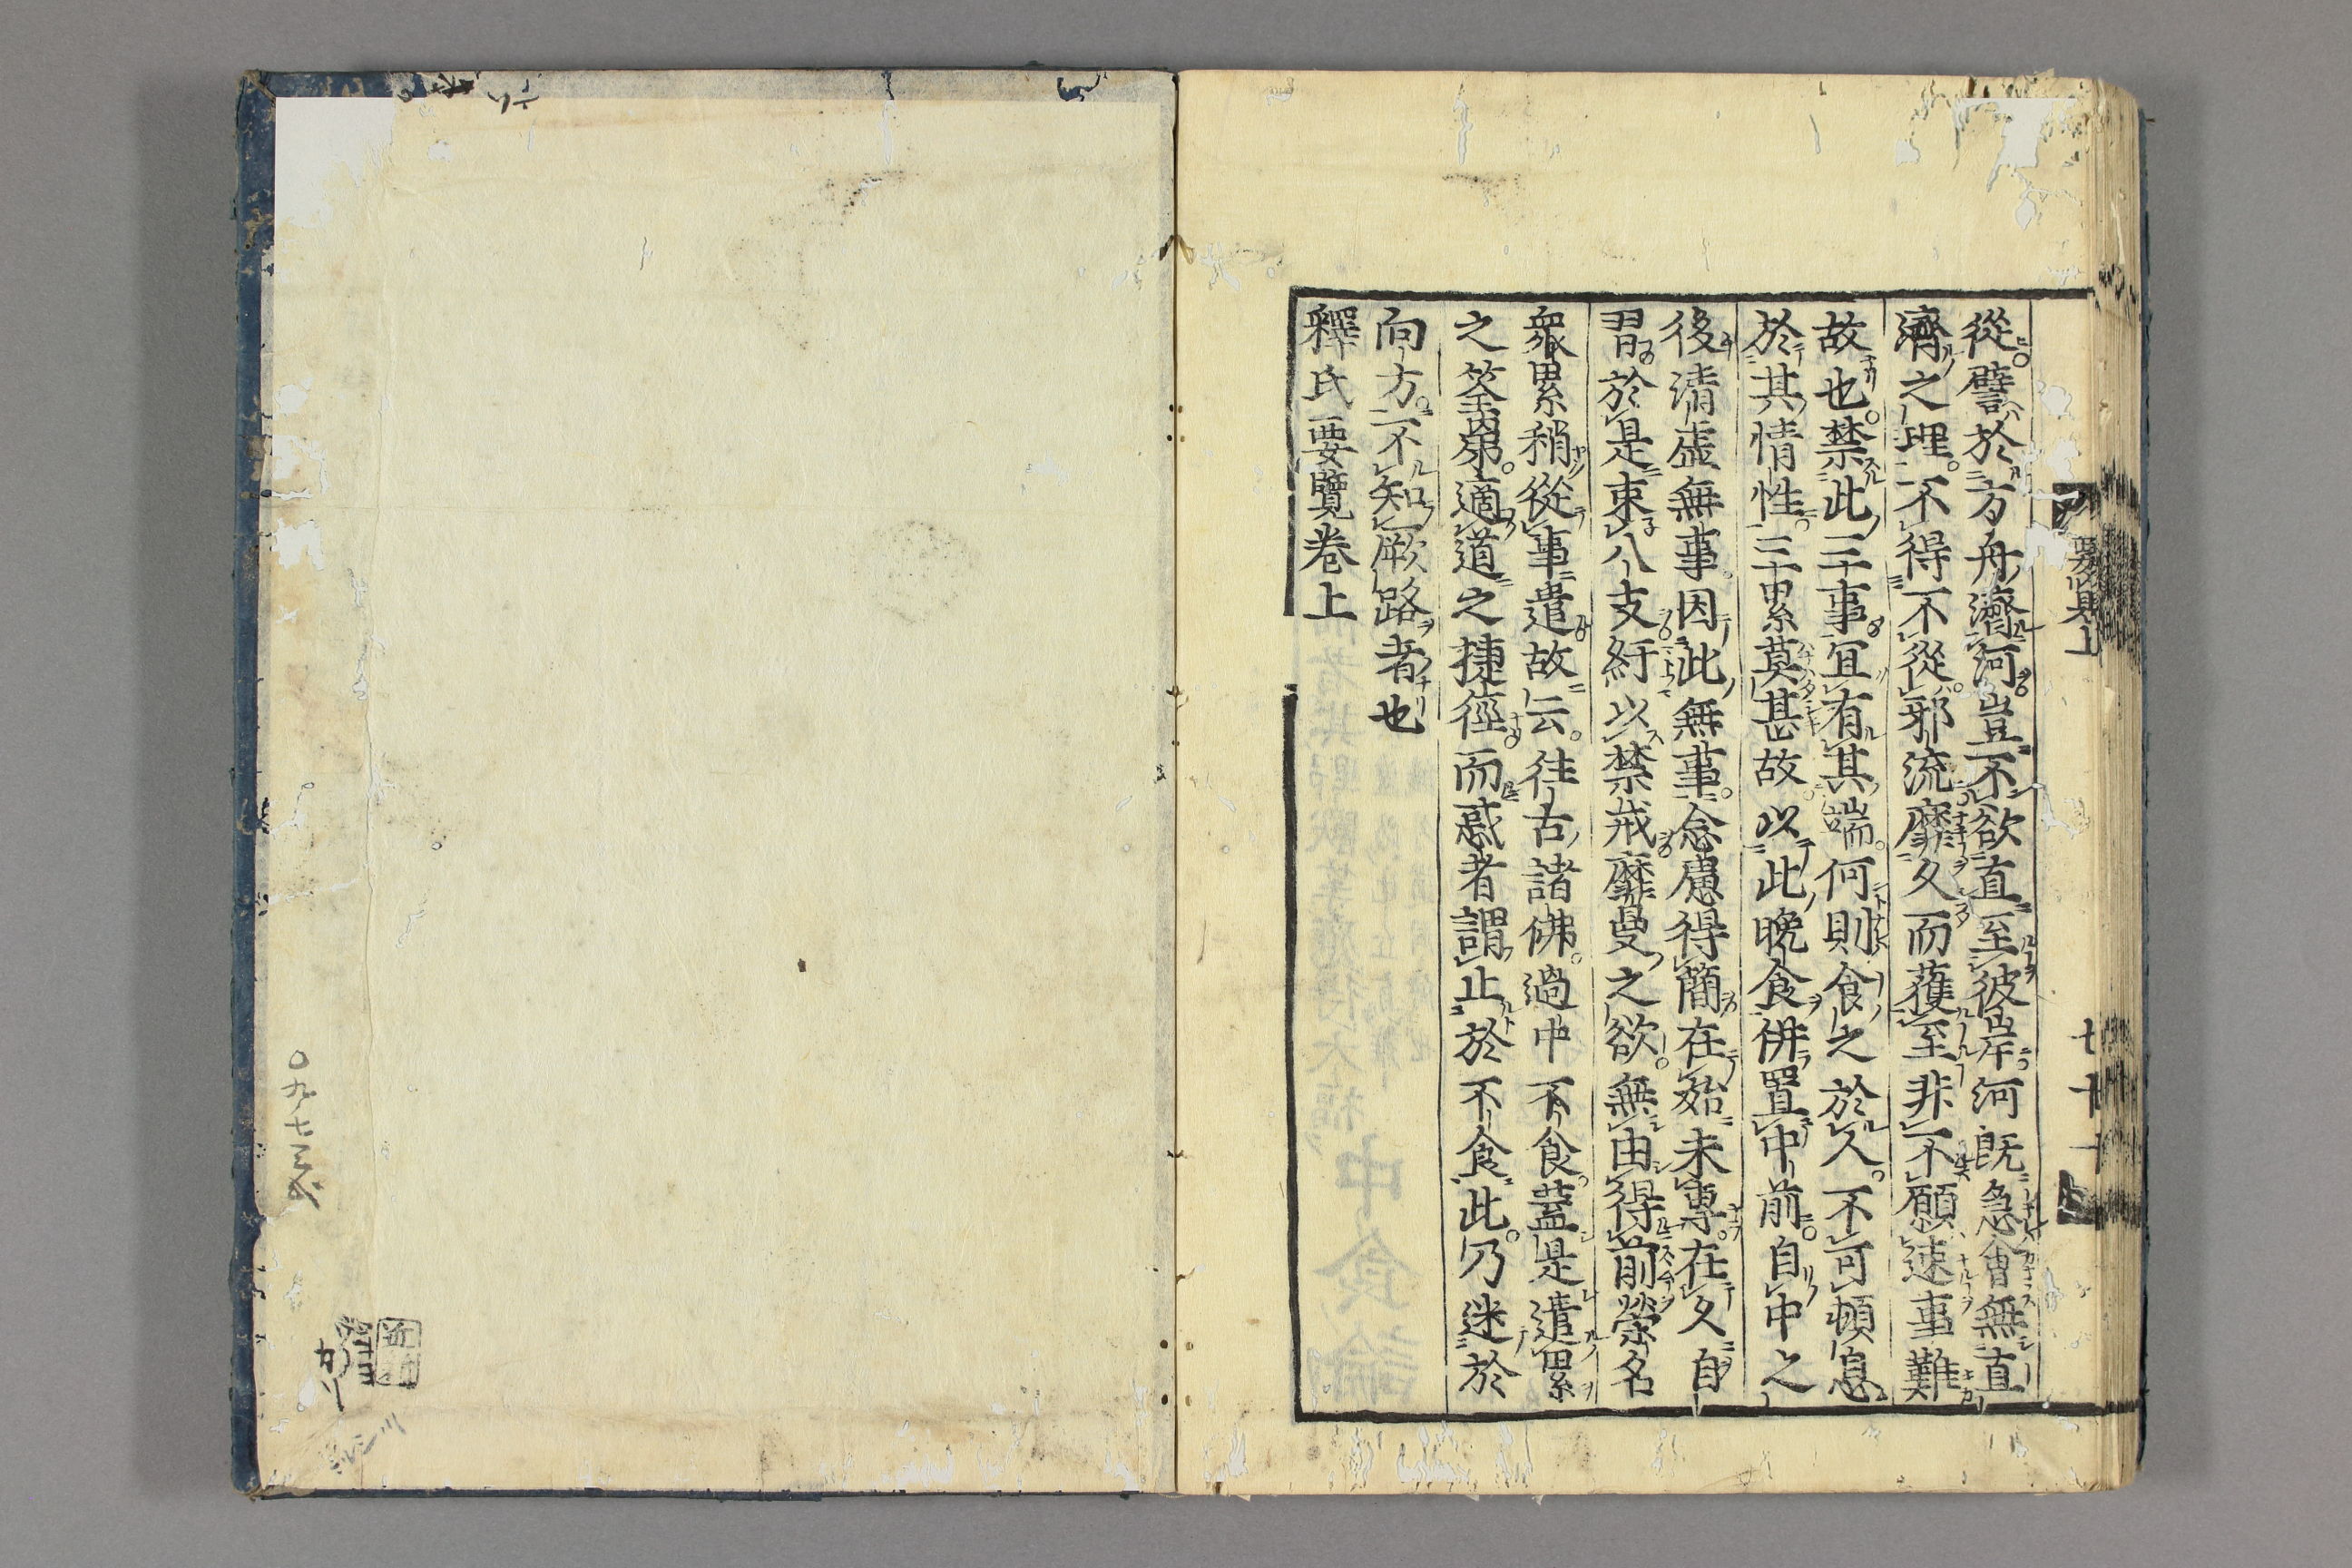 從譬於方舟濟河豈不欲直至彼岸河既急會無直
濟之理不得不從邪流靡久而獲至非不願速事難
故也禁此三事宜有其端何則食之於人不可頓息
於其情性三累莫甚故以此晚食併置中前自中之
後清虛無事因此無事念慮得簡在始未專在久自
習於是束八支紆以禁戒靡曼之欲無由得前榮名
衆累稍從事遣故云往古諸佛過中不食蓋是遣累
之筌第適道之捷徑而惑者謂止於不食此乃迷於
向方不知厥路者也
釋氏要覽卷上
要覽上
七十一
〇九七三